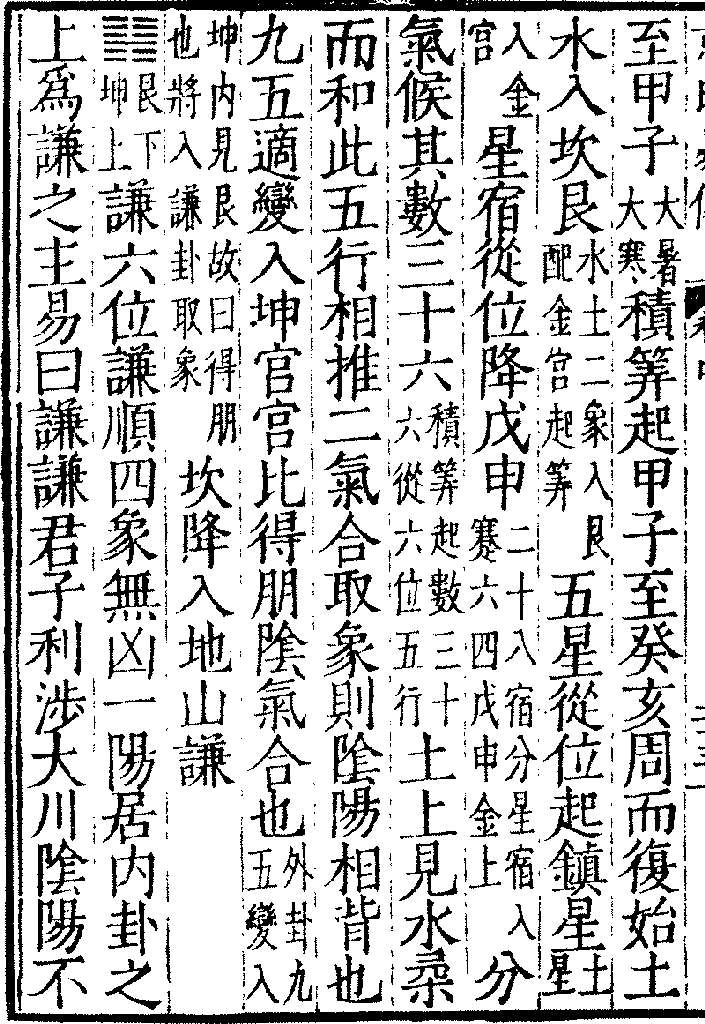 至甲子大暑大寒積筭起甲子至癸亥周而復始土
水入坎艮水土二象入艮配金宮起筭五星從位起鎮星土星
入金宮星宿從位降戊申二十八宿分星宿入蹇六四戊申金上分
氣候其數三十六積筭起數三十六從六位五行土上見水柔
而和此五行相推二氣合取象則陰陽相背也
九五適變入坤宮宮比得朋陰氣合也外卦九五變入
坤內見艮故曰得朋也將入謙卦取象坎降入地山謙
䷎艮下坤上謙六位謙順四象無凶一陽居內卦之
上爲謙之主易曰謙謙君子利涉大川陰陽不